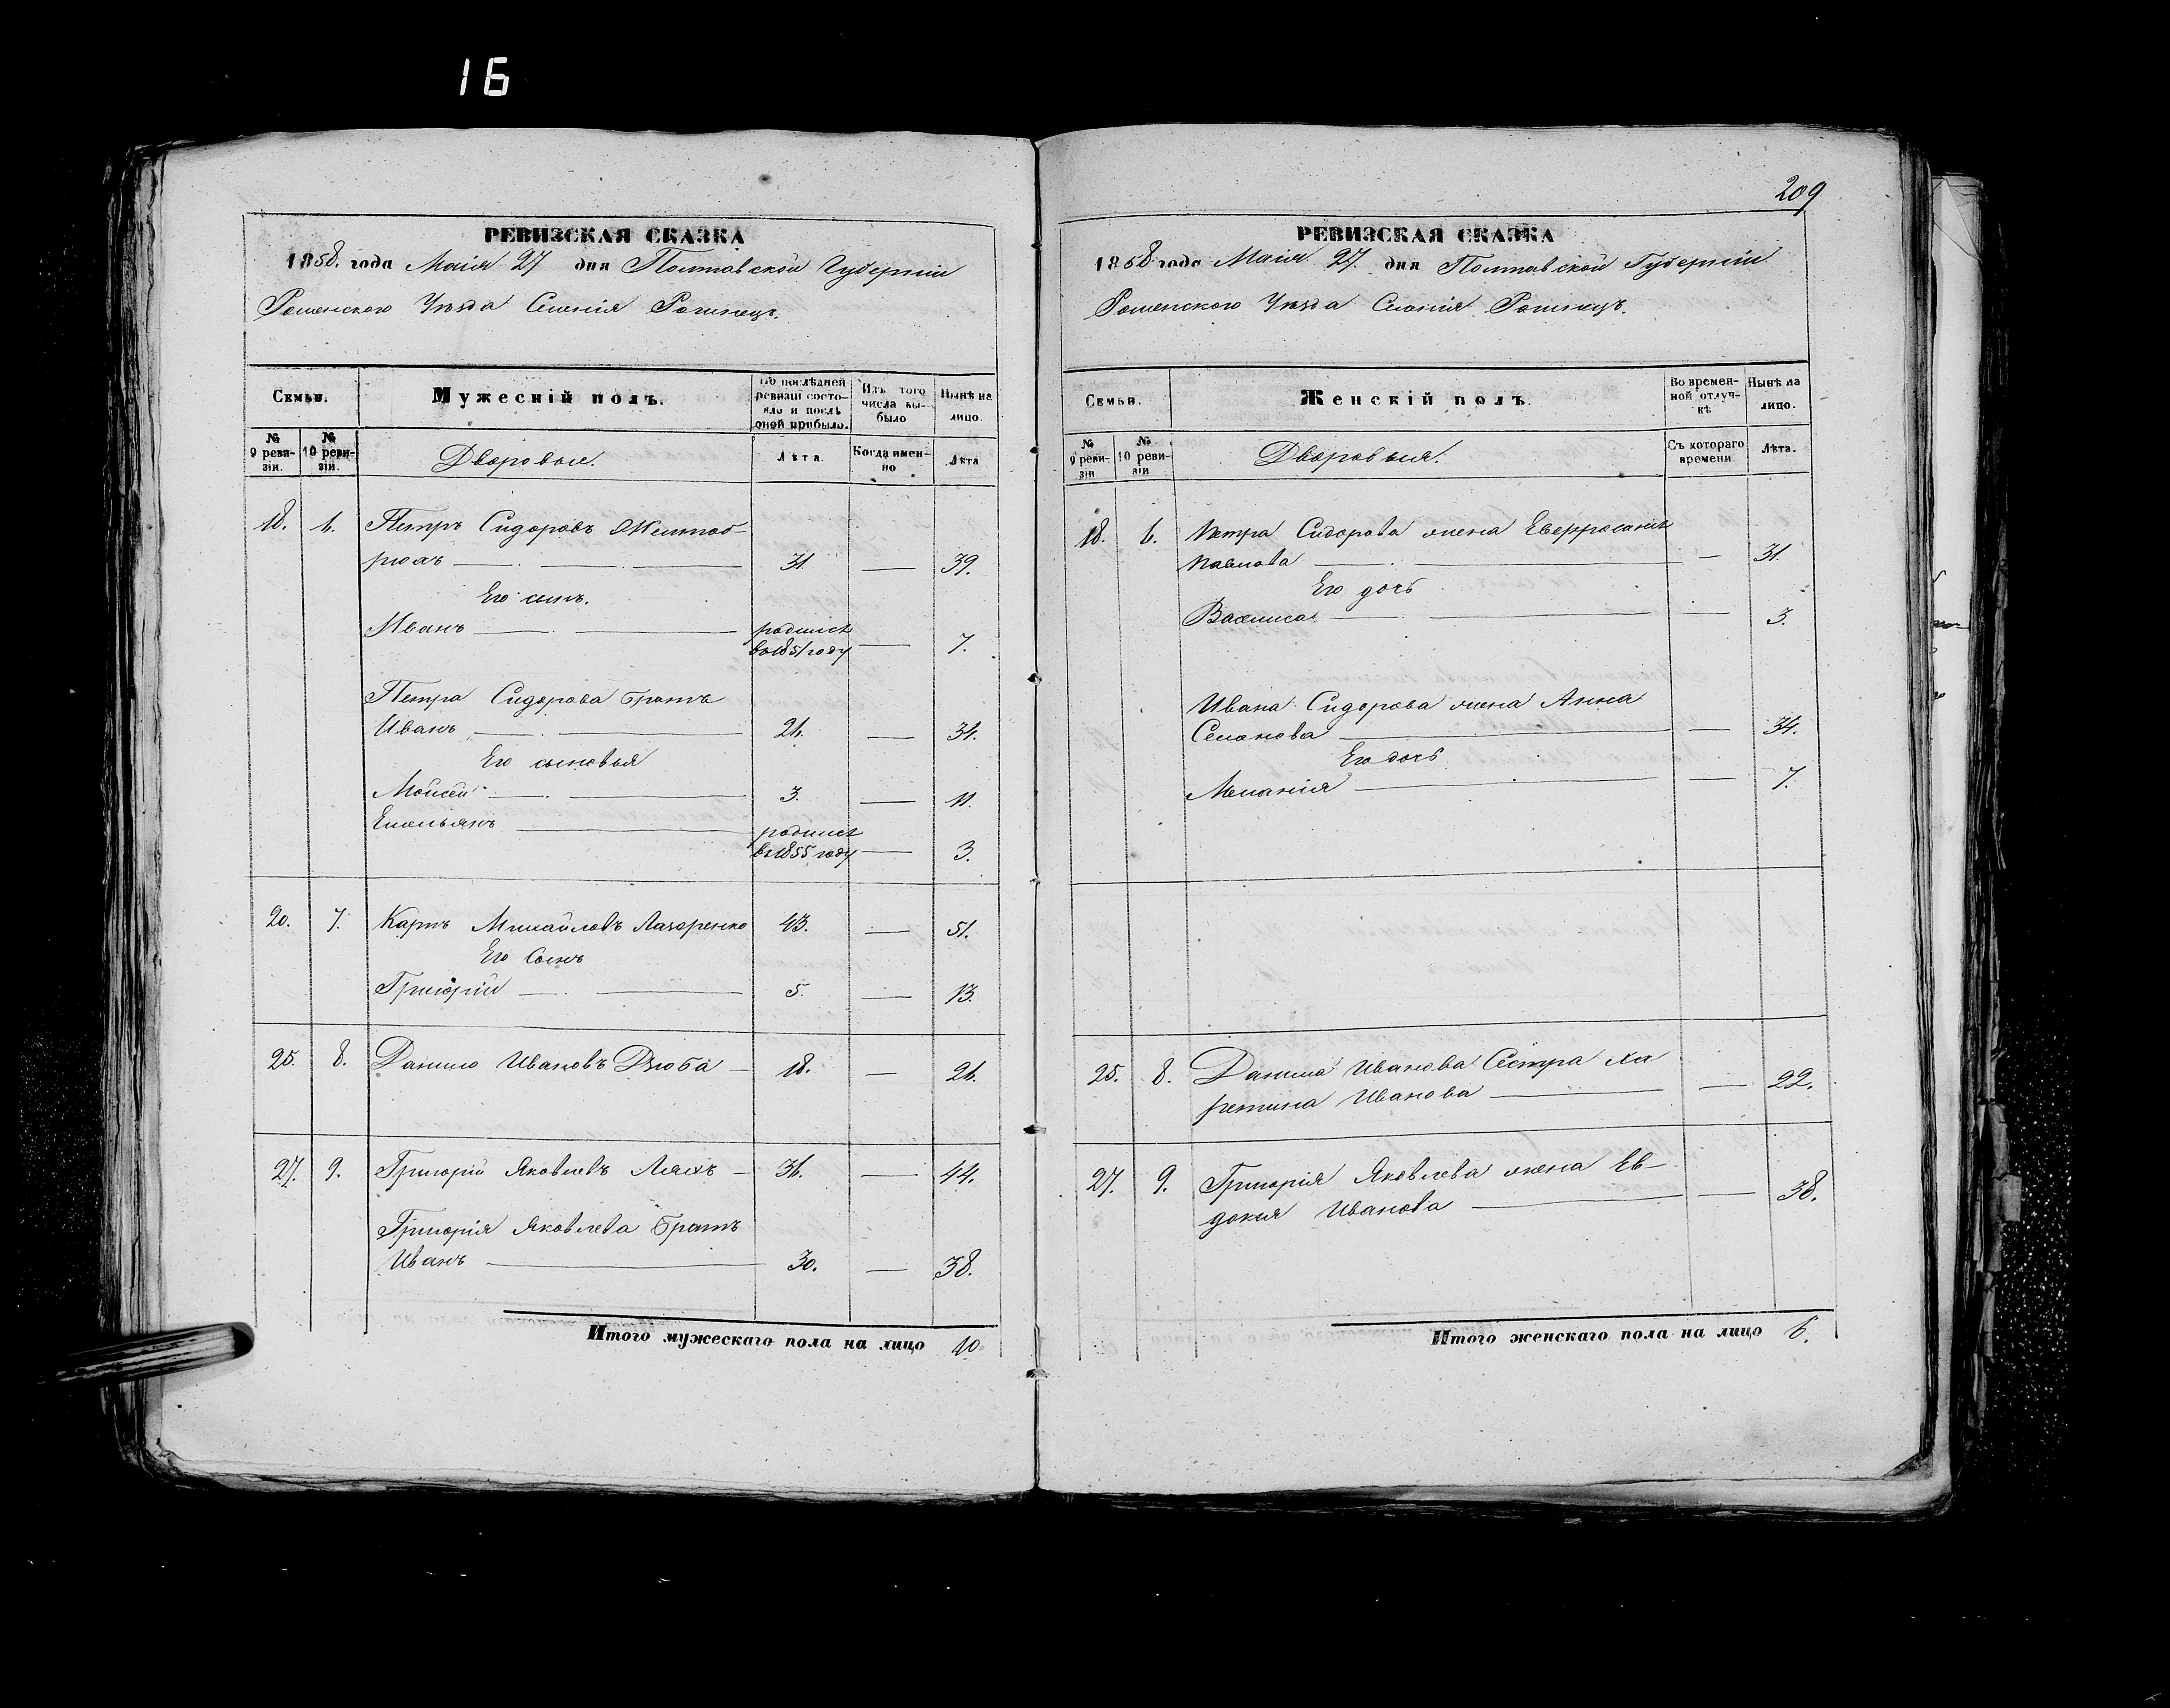 16
209
РЕВИЗСКАЯ СКАЗКА
1858. года Маія 27 дня Полтавской Губерніи
Роменского Уѣзда Селенія Рогинецъ.
Семьи.
Мужескій полъ.
По послѣдней ревизіи состояло и послѣ оной прибыло.
Изъ того числа выбыло
Нынѣ на лицо.
№ 9 ревизіи.
№ 10 ревизіи.
Дворовые.
Лѣта.
Когда именно
Лѣта
18. 6. Петръ Сидоровъ Желтоб-
рюхъ — 31. — 39.
Его сынъ.
Иванъ — родился
в 1851 году — 7.
Петра Сидорова братъ
Иванъ — 26. — 34.
Его сыновья
Моисей — 3. — 11.
Емельянъ — родился
в 1855 году — 3.
20. 7. Карпъ Михайловъ Лазоренко 43. — 51.
Его Сынъ
Григорій — 5. — 13.
25. 8. Данило Ивановъ Дзюба — 18. — 26.
27. 9. Григорій Яковлевъ Ляхъ — 36. — 44.
Григорія Яковлева братъ
Иванъ — 30. — 38.
Итого мужескаго пола на лицо 10.
РЕВИЗСКАЯ СКАЗКА
1858 года Маія 27. дня Полтавской Губерніи
Роменского Уѣзда Селенія Рогинецъ.
Семьи.
Женскій полъ.
Во временной отлучкѣ
Нынѣ на лицо.
№ 9 ревизіи
№ 10 ревизіи
Дворовыя.
Съ котораго времени
Лѣта.
18. 6. Петра Сидорова жена
Павлова — — 31.
Его дочь
— — 3.
Ивана Сидорова жена Анна
Семенова — — 34.
Его дочь
Меланія — — 7.
25. 8. Данила Иванова Сестра Ха
ретина Иванова — — 22.
27. 9. Григорія Яковлева жена Ев-
докия Иванова — — 38.
Итого женскаго пола на лицо 6.